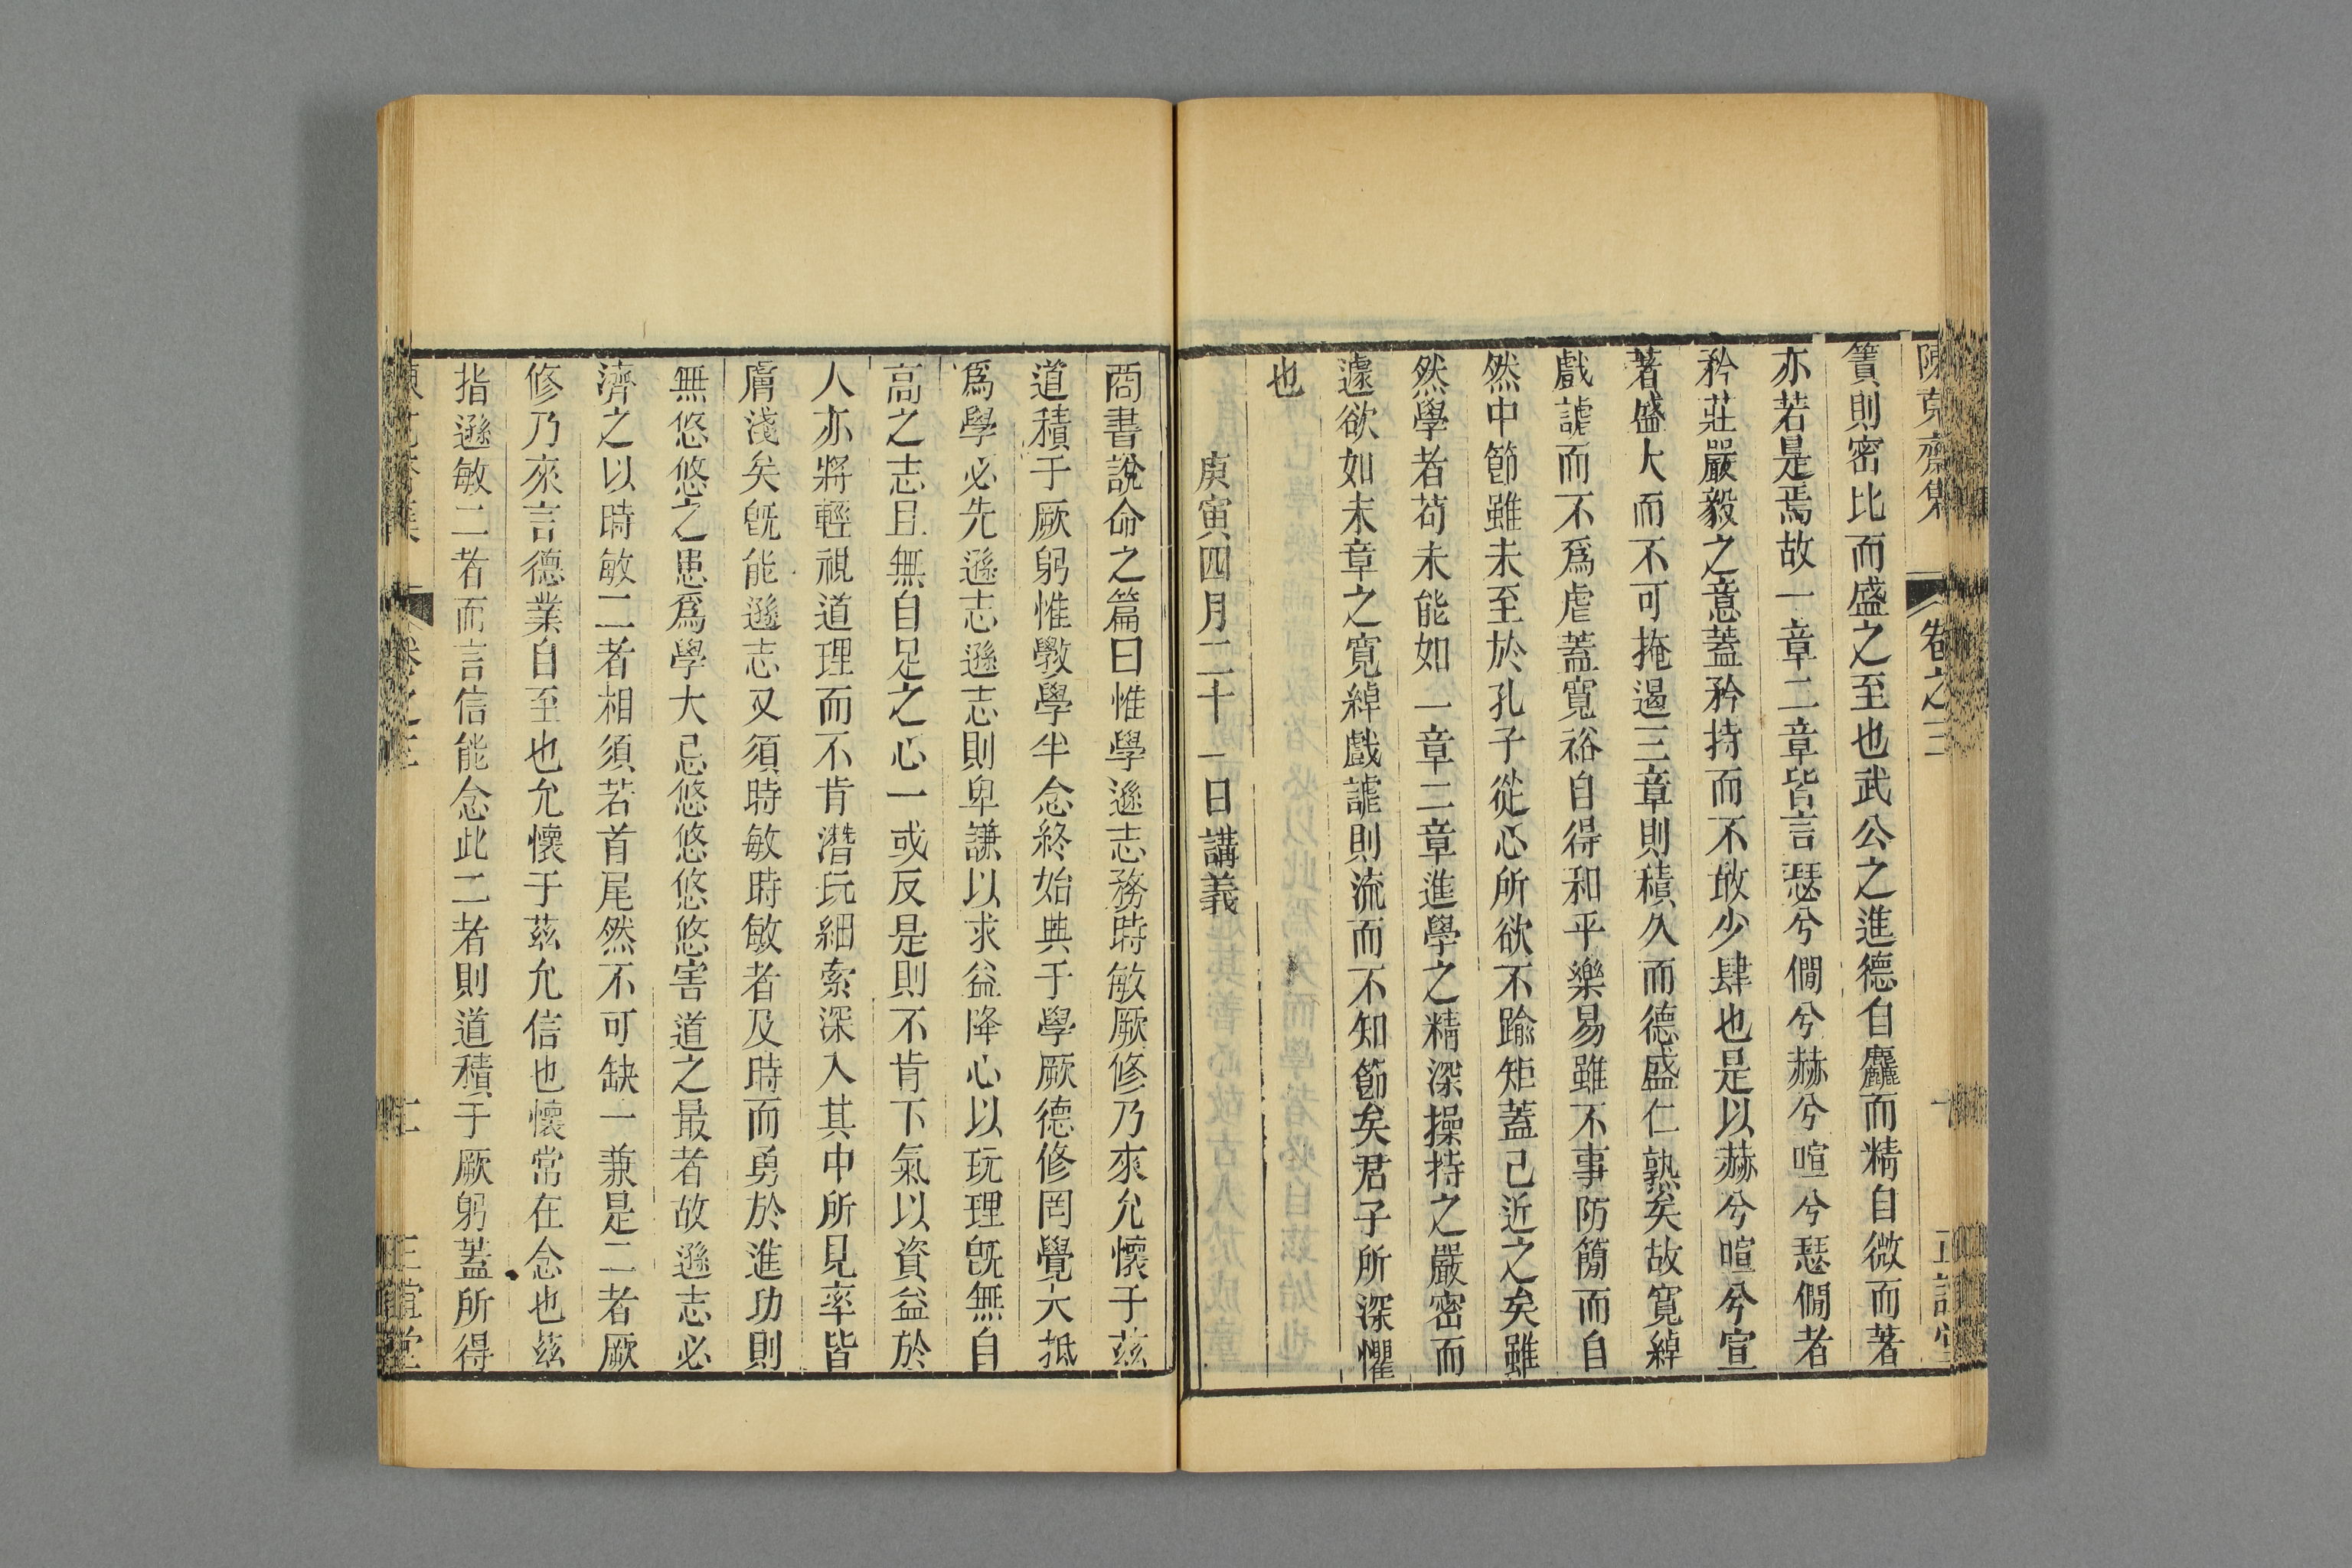 陳克齋集 卷之三 十 正誼堂
簀則密比而盛之至也武公之進德自麤而精自微而著
亦若是焉故一章二章皆言瑟兮僩兮赫兮喧兮瑟僩者
矜莊嚴毅之意蓋矜持而不敢少肆也是以赫兮喧兮宣
著盛大而不可掩遏三章則積久而德盛仁熟矣故寬綽
戲謔而不爲虐蓋寬裕自得和平樂易雖不事防簡而自
然中節雖未至於孔子從心所欲不踰矩蓋已近之矣雖
然學者苟未能如一章二章進學之精深操持之嚴密而
遽欲如末章之寬綽戲謔則流而不知節矣君子所深懼
也
庚寅四月二十一日講義
商書說命之篇曰惟學遜志務時敏厥修乃來允懷于茲
道積于厥躬惟斆學半念終始典于學厥德修罔覺大抵
爲學必先遜志遜志則卑謙以求益降心以玩理旣無自
高之志且無自足之心一或反是則不肯下氣以資益於
人亦將輕視道理而不肯潛玩細索深入其中所見率皆
膚淺矣旣能遜志又須時敏時敏者及時而勇於進功則
無悠悠之患爲學大忌悠悠悠悠害道之最者故遜志必
濟之以時敏二者相須若首尾然不可缺一兼是二者厥
修乃來言德業自至也允懷于茲允信也懷常在念也茲
指遜敏二者而言信能念此二者則道積于厥躬蓋所得
卷之三 十一 正誼堂